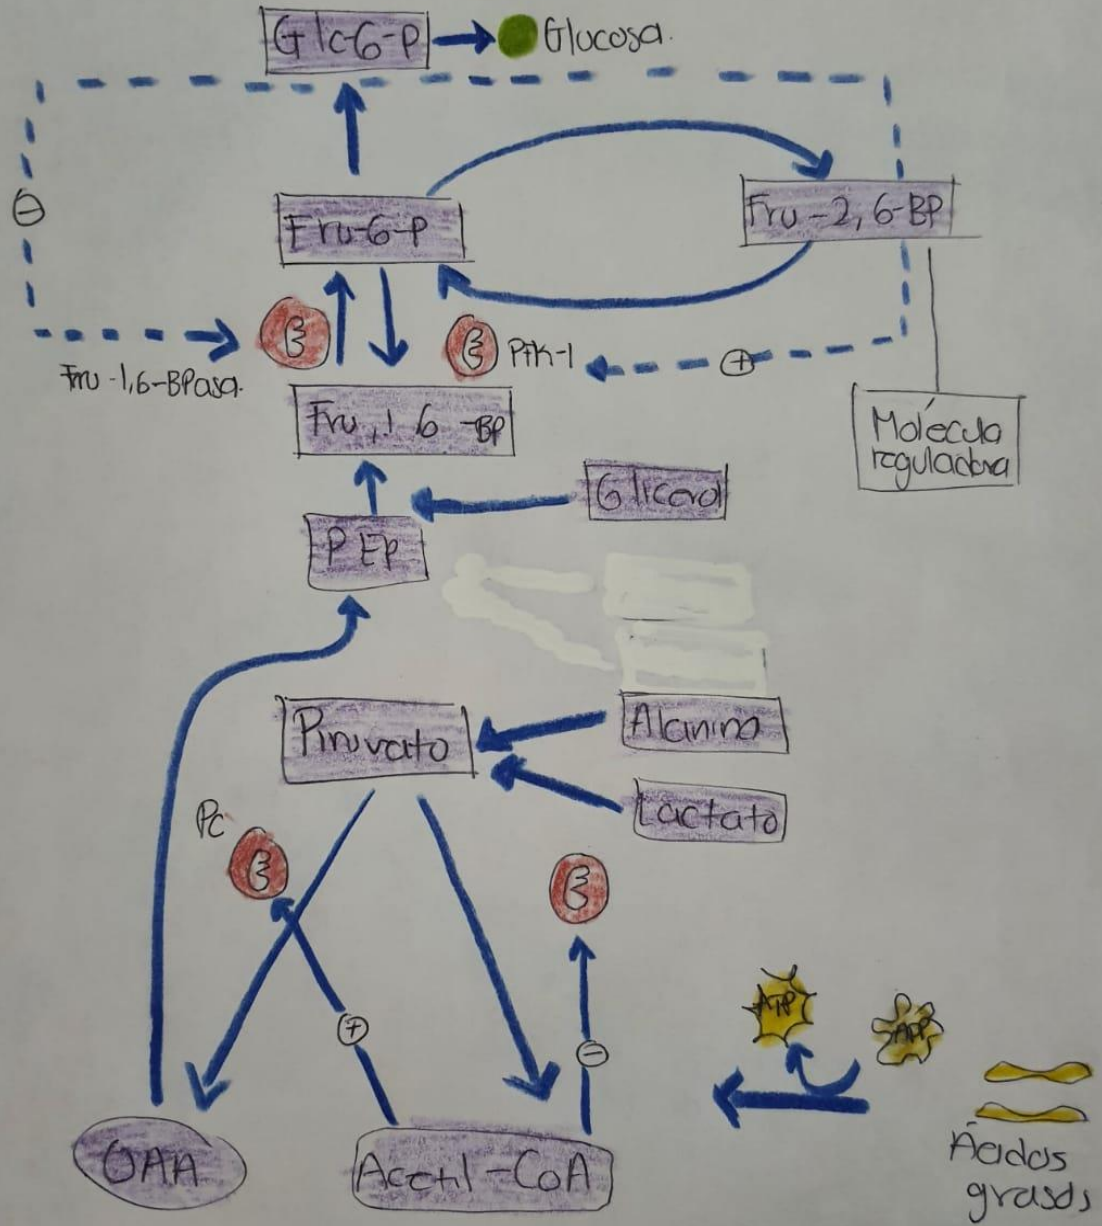 Glc-6-P
Glucosa.
⊖
Fru-6-P
Fru-2,6-BP
E
E
PFK-1
⊕
Fru-1,6-BPasa.
Fru,1 6-BP
Molécula
reguladora
Glicerol
PEP
Piruvato
Alanina
Lactato
PC
E
E
⊕
⊖
ATP
ADP
OAA
Acetil-CoA
Ácidos
grasos